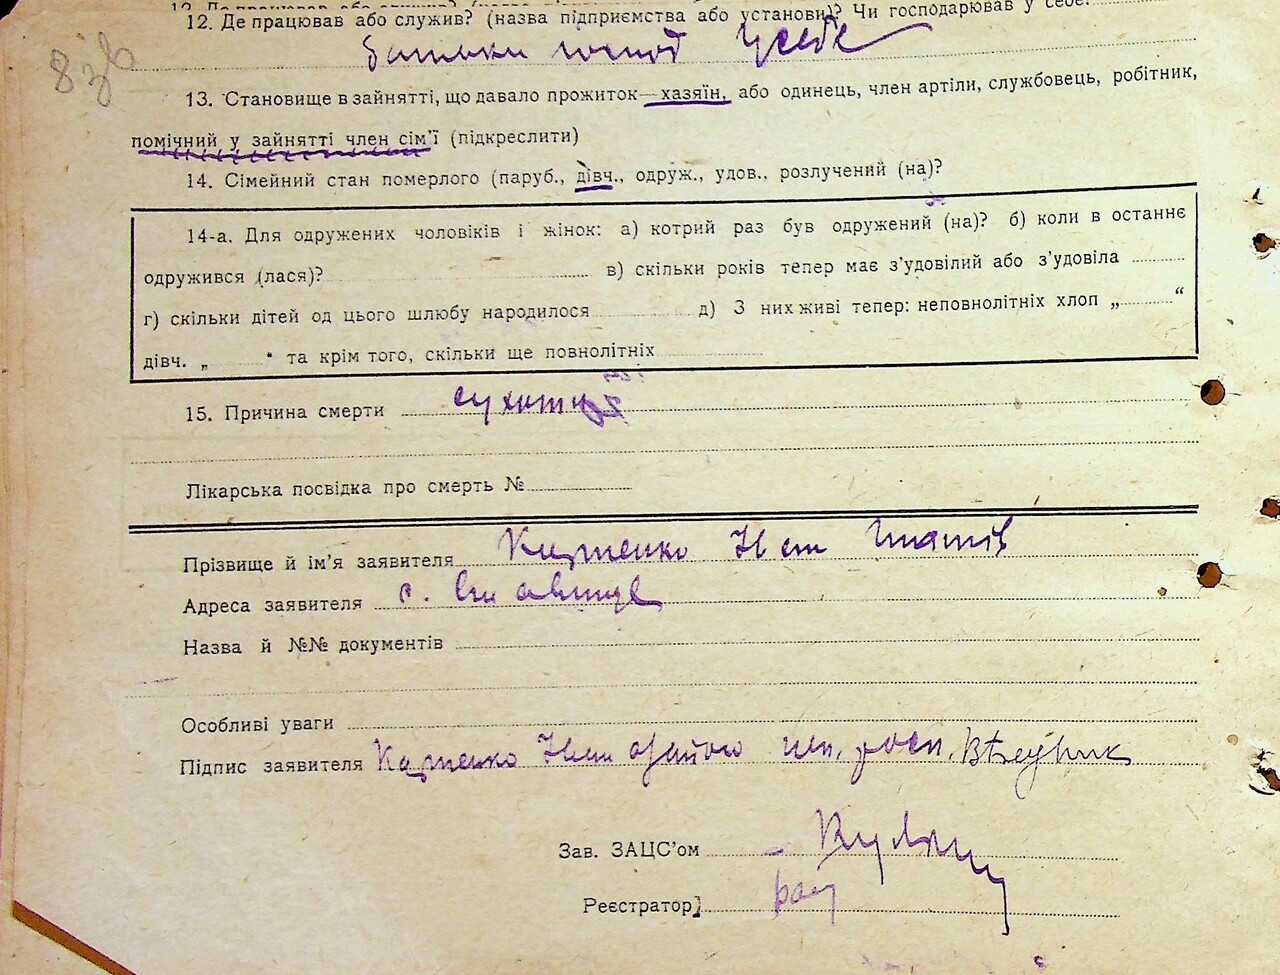 8 зв
12. Де працював або служив? (назва підприємства або установи)? Чи господарював у себе?
батьки господ у себе
13. Становище в зайнятті, що давало прожиток—хазяїн, або одинець, член артіли, службовець, робітник,
помічний у зайнятті член сім'ї (підкреслити)
14. Сімейний стан померлого (паруб., дівч., одруж., удов., розлучений (на)?
14-а. Для одружених чоловіків і жінок: а) котрий раз був одружений (на)? б) коли в останнє
одружився (лася)? в) скільки років тепер має з'удовілий або з'удовіла
г) скільки дітей од цього шлюбу народилося д) З них живі тепер: неповнолітніх хлоп „ “
дівч. „ “ та крім того, скільки ще повнолітніх
15. Причина смерти сухоти
Лікарська посвідка про смерть №
Прізвище й ім'я заявителя
Адреса заявителя с.
Назва й №№ документів
Особливі уваги
Підпис заявителя
Зав. ЗАЦС'ом
Реєстратор